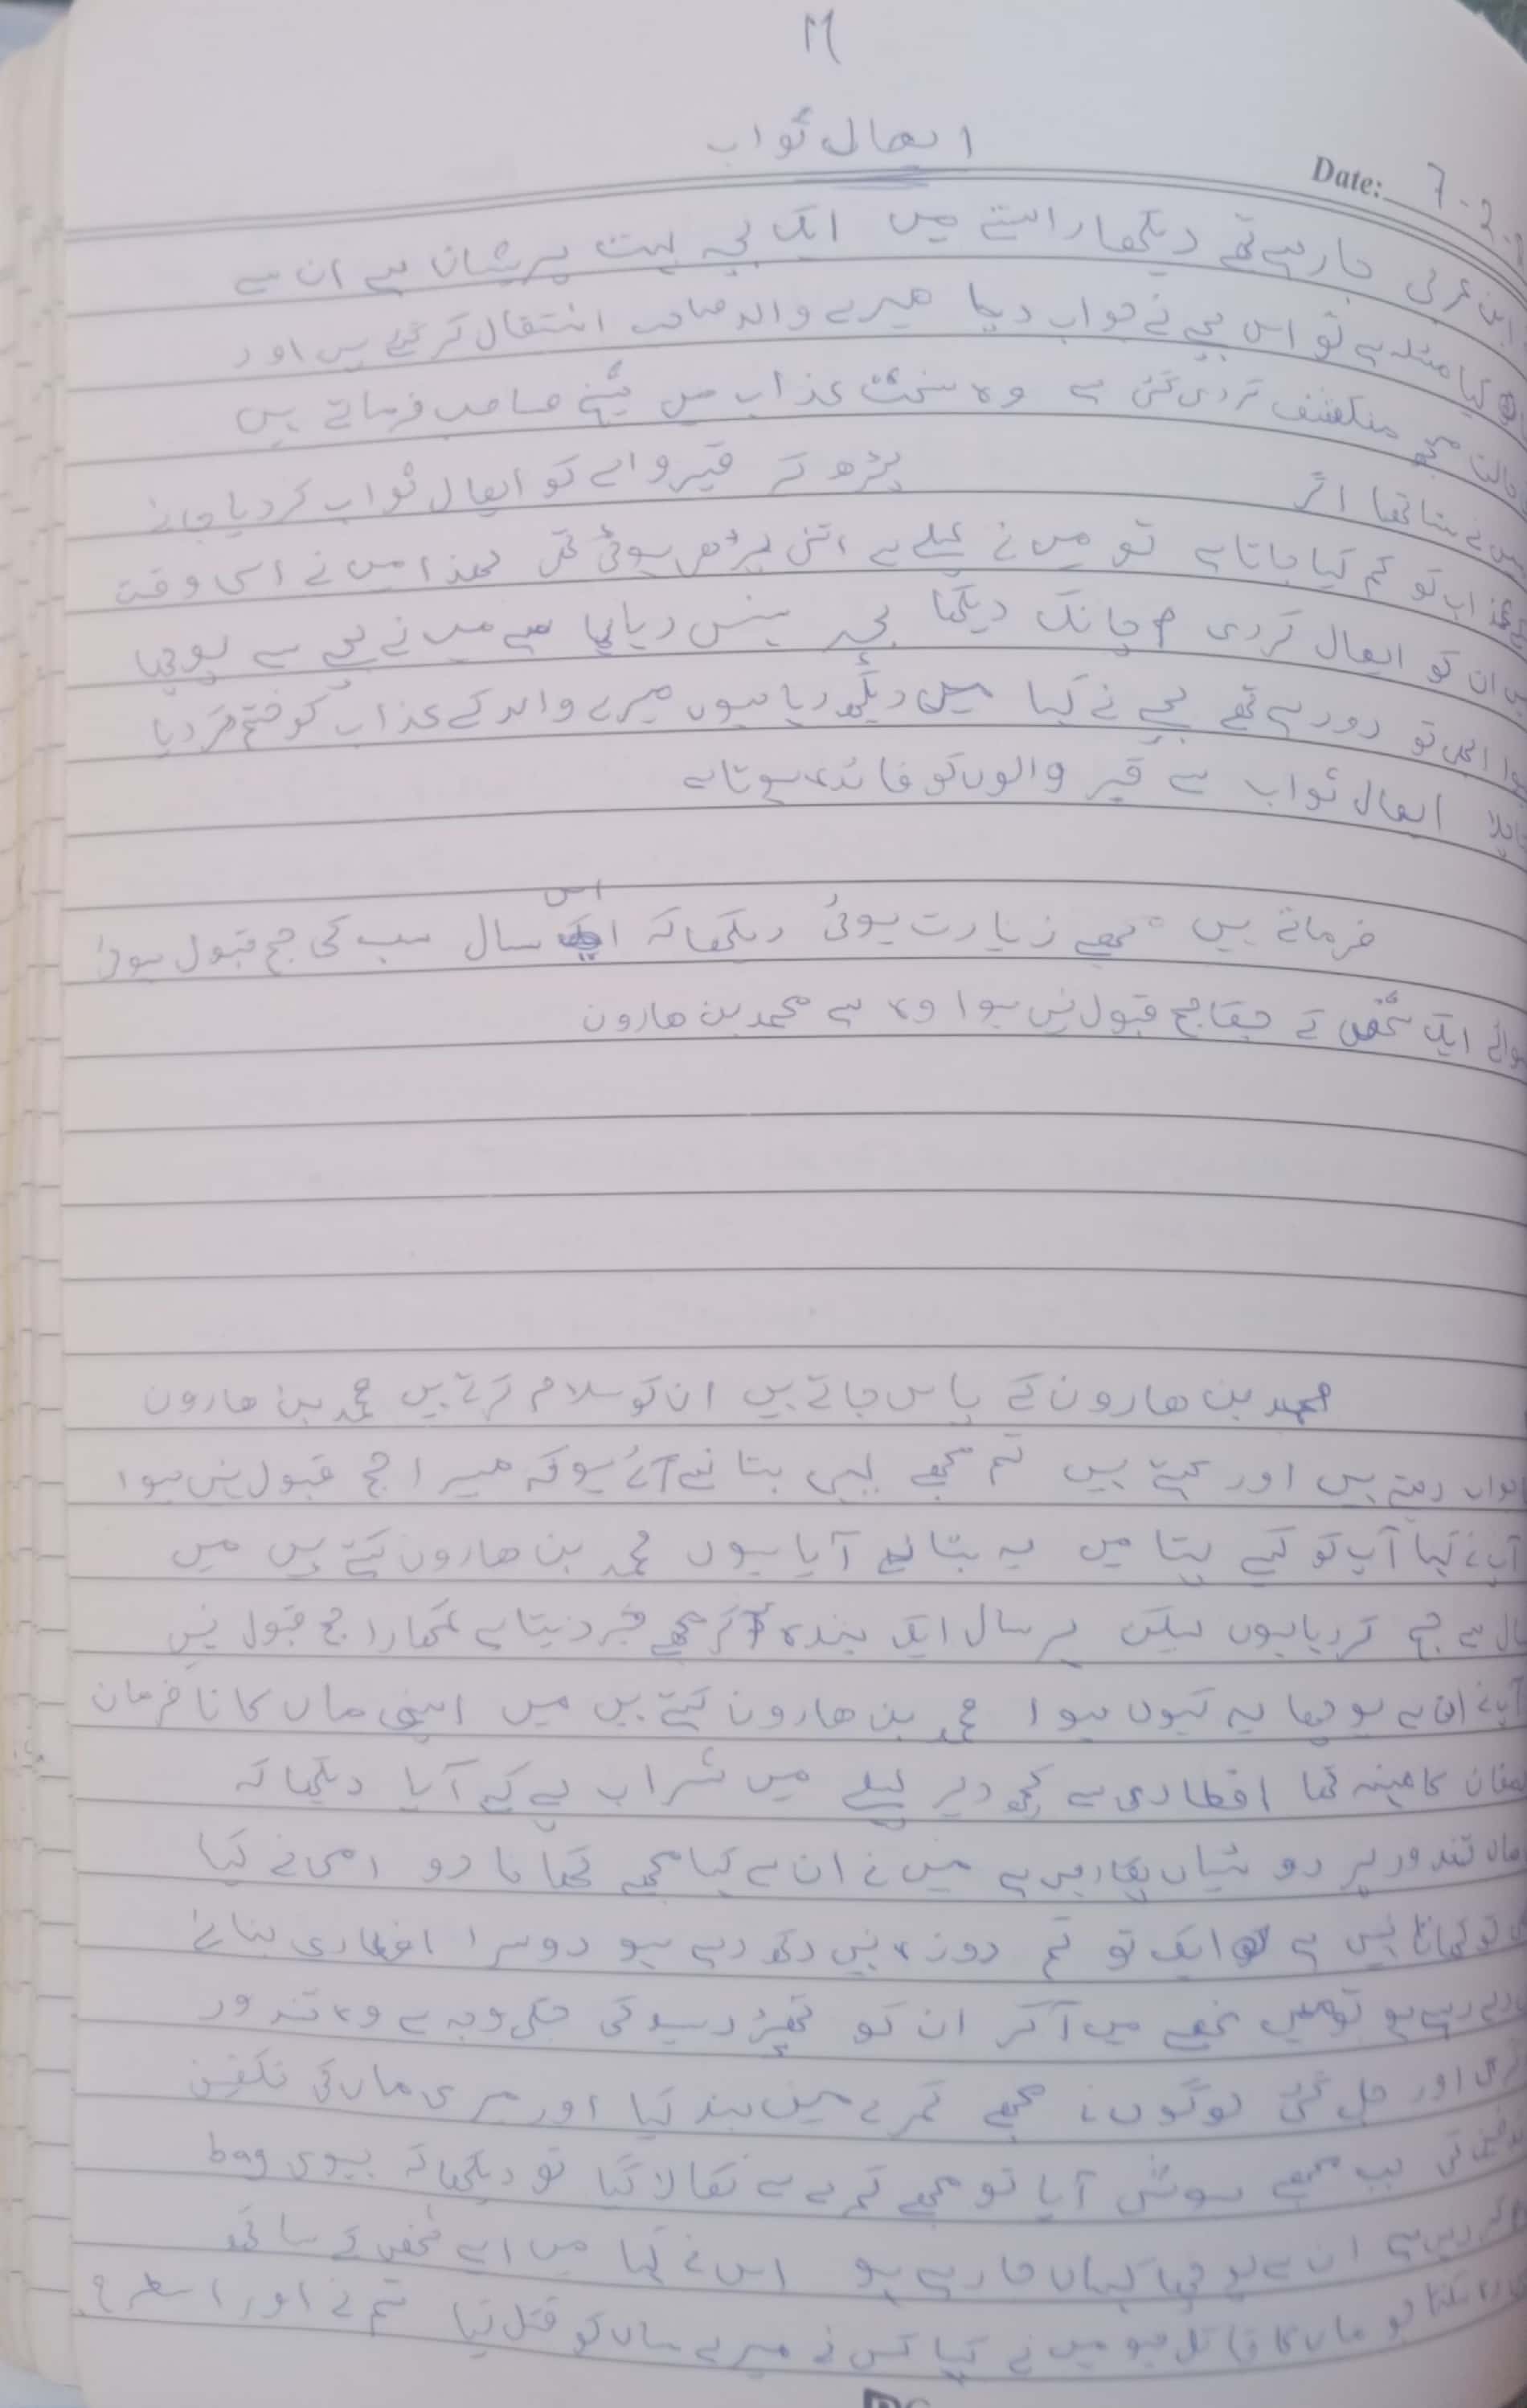 ۲۱
ایصال ثواب
Date: 7-2-
ابن عربی جا رہے تھے دیکھا راستے میں ایک بچہ بہت پریشان ہے ان سے
کیا مسئلہ ہے تو اس بچے نے جواب دیا میرے والد صاحب انتقال کر گئے ہیں اور
حالت مجھ منکشف کر دی گئی ہے وہ سخت عذاب میں شیخ صاحب فرماتے ہیں
میں نے سنا تھا اگر پڑھ کے قبر والے کو ایصال ثواب کر دیا جائے
عذاب کو کم کیا جاتا ہے تو میں نے پہلے سے اتنی پڑھی ہوئی تھی لھذا میں نے اسی وقت
ان کو ایصال کر دی اچانک دیکھا بچہ ہنس رہا تھا میں نے بچے سے پوچھا
ابھی تو رو رہے تھے بچے نے کہا میں دیکھ رہا ہوں میرے والد کے عذاب کو ختم کر دیا
ایصال ثواب سے قبر والوں کو فائدہ ہوتا ہے
فرماتے ہیں مجھے زیارت ہوئی دیکھا کہ اس سال سب کی حج قبول ہوئی
سوائے ایک شخص کے جسکا حج قبول نہیں ہوا وہ ہے محمد بن ھارون
محمد بن ھارون کے پاس جاتے ہیں ان کو سلام کرتے ہیں محمد بن ھارون
جواب دیتے ہیں اور کہتے ہیں تم مجھے یہی بتانے آئے ہو کہ میرا حج قبول نہیں ہوا
آپ نے کہا آپ کو کیسے پتا میں یہ بتانے آیا ہوں محمد بن ھارون کہتے ہیں میں
سال سے حج کر رہا ہوں لیکن ہر سال ایک بندہ آکر مجھے خبر دیتا ہے تمھارا حج قبول نہیں
آپ نے ان سے پوچھا یہ کیوں ہوا محمد بن ھارون کہتے ہیں میں اپنی ماں کا نا فرمان
رمضان کا مہینہ تھا افطاری سے کچھ دیر پہلے میں شراب پی کے آیا دیکھا کہ
ماں تندور پر روٹیاں پکا رہی ہے میں نے ان سے کہا مجھے کھانا دو امی نے کہا
تو کھانا نہیں ہے ایک تو تم روزہ نہیں رکھ رہے ہو دوسرا افطاری بنانے
دے رہے ہو تو میں غصے میں آکر ان کو تھپڑ رسید کی جسکی وجہ سے وہ تندور
گری اور جل گئی لوگوں نے مجھے کمرے میں بند کیا اور میری ماں کی تکفین
تدفین کی جب مجھے ہوش آیا تو مجھے کمرے سے نکالا گیا تو دیکھا کہ بیوی bag
کر رہی ہے ان سے پوچھا کہاں جا رہے ہو اس نے کہا میں ایسے شخص کے ساتھ
ماں کا قاتل ہو میں نے کہا کس نے میرے ماں کو قتل کیا تم نے اور اسطرح